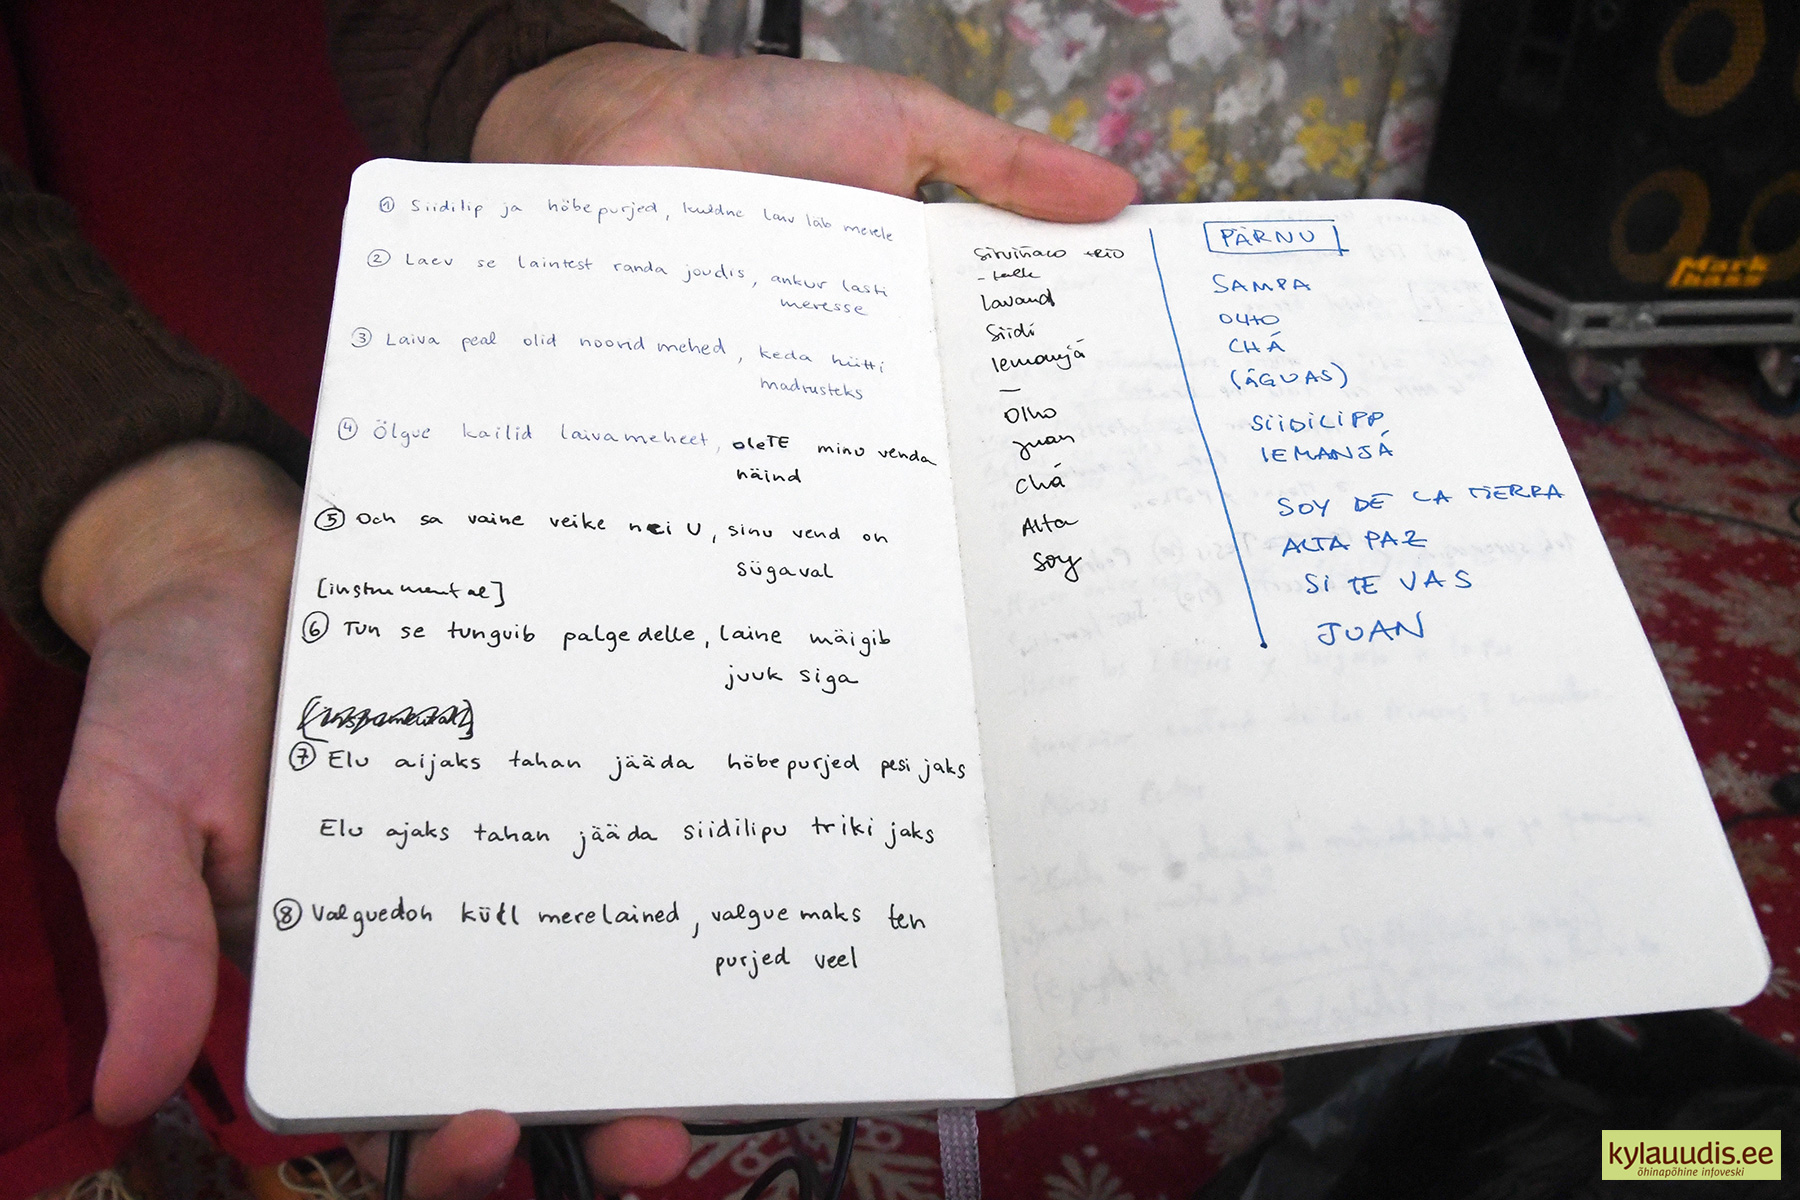 ① Siidilip ja hõbepurjed, kuldne laiv läb merele
② Laev se laintest randa joudis, ankur lasti
meresse
③ Laiva peal olid noorid mehed, keda hütti
madrusteks
④ Ölgue kailid laivameheet, oleTE minu venda
näind
⑤ Och sa vaine veike nei U, sinu vend on
sügaval
[instrumental]
⑥ Tun se tunguib palgedelle, laine mäigib
juuk siga
[instrumental]
⑦ Elu aijaks tahan jääda hõbepurjed pesijaks
Elu ajaks tahan jääda siidilipu trikijaks
⑧ Valguedoh küll merelained, valguemaks ten
purjed veel
trio
- talk
lavand
siidi
Iemanjá
—
Olho
Juan
Chá
Alta
Soy
PÄRNU
SAMPA
CHÁ
(ÁGUAS)
SIIDILIPP
IEMANJÁ
SOY DE LA TIERRA
ALTA PAZ
SI TE VAS
JUAN
Mark
bass
kylauudis.ee
õhinapõhine infoveski